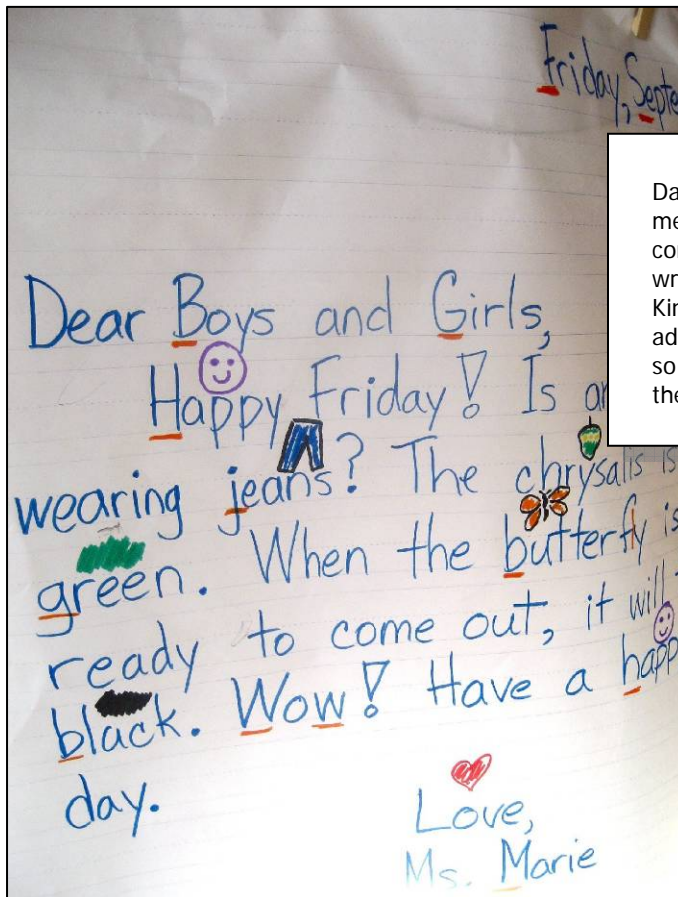 Friday,
Dear Boys and Girls,
Happy Friday! Is
wearing jeans? The chrysalis is
green. When the butterfly is
ready to come out, it will
black. Wow! Have a
day.
Love,
Ms. Marie